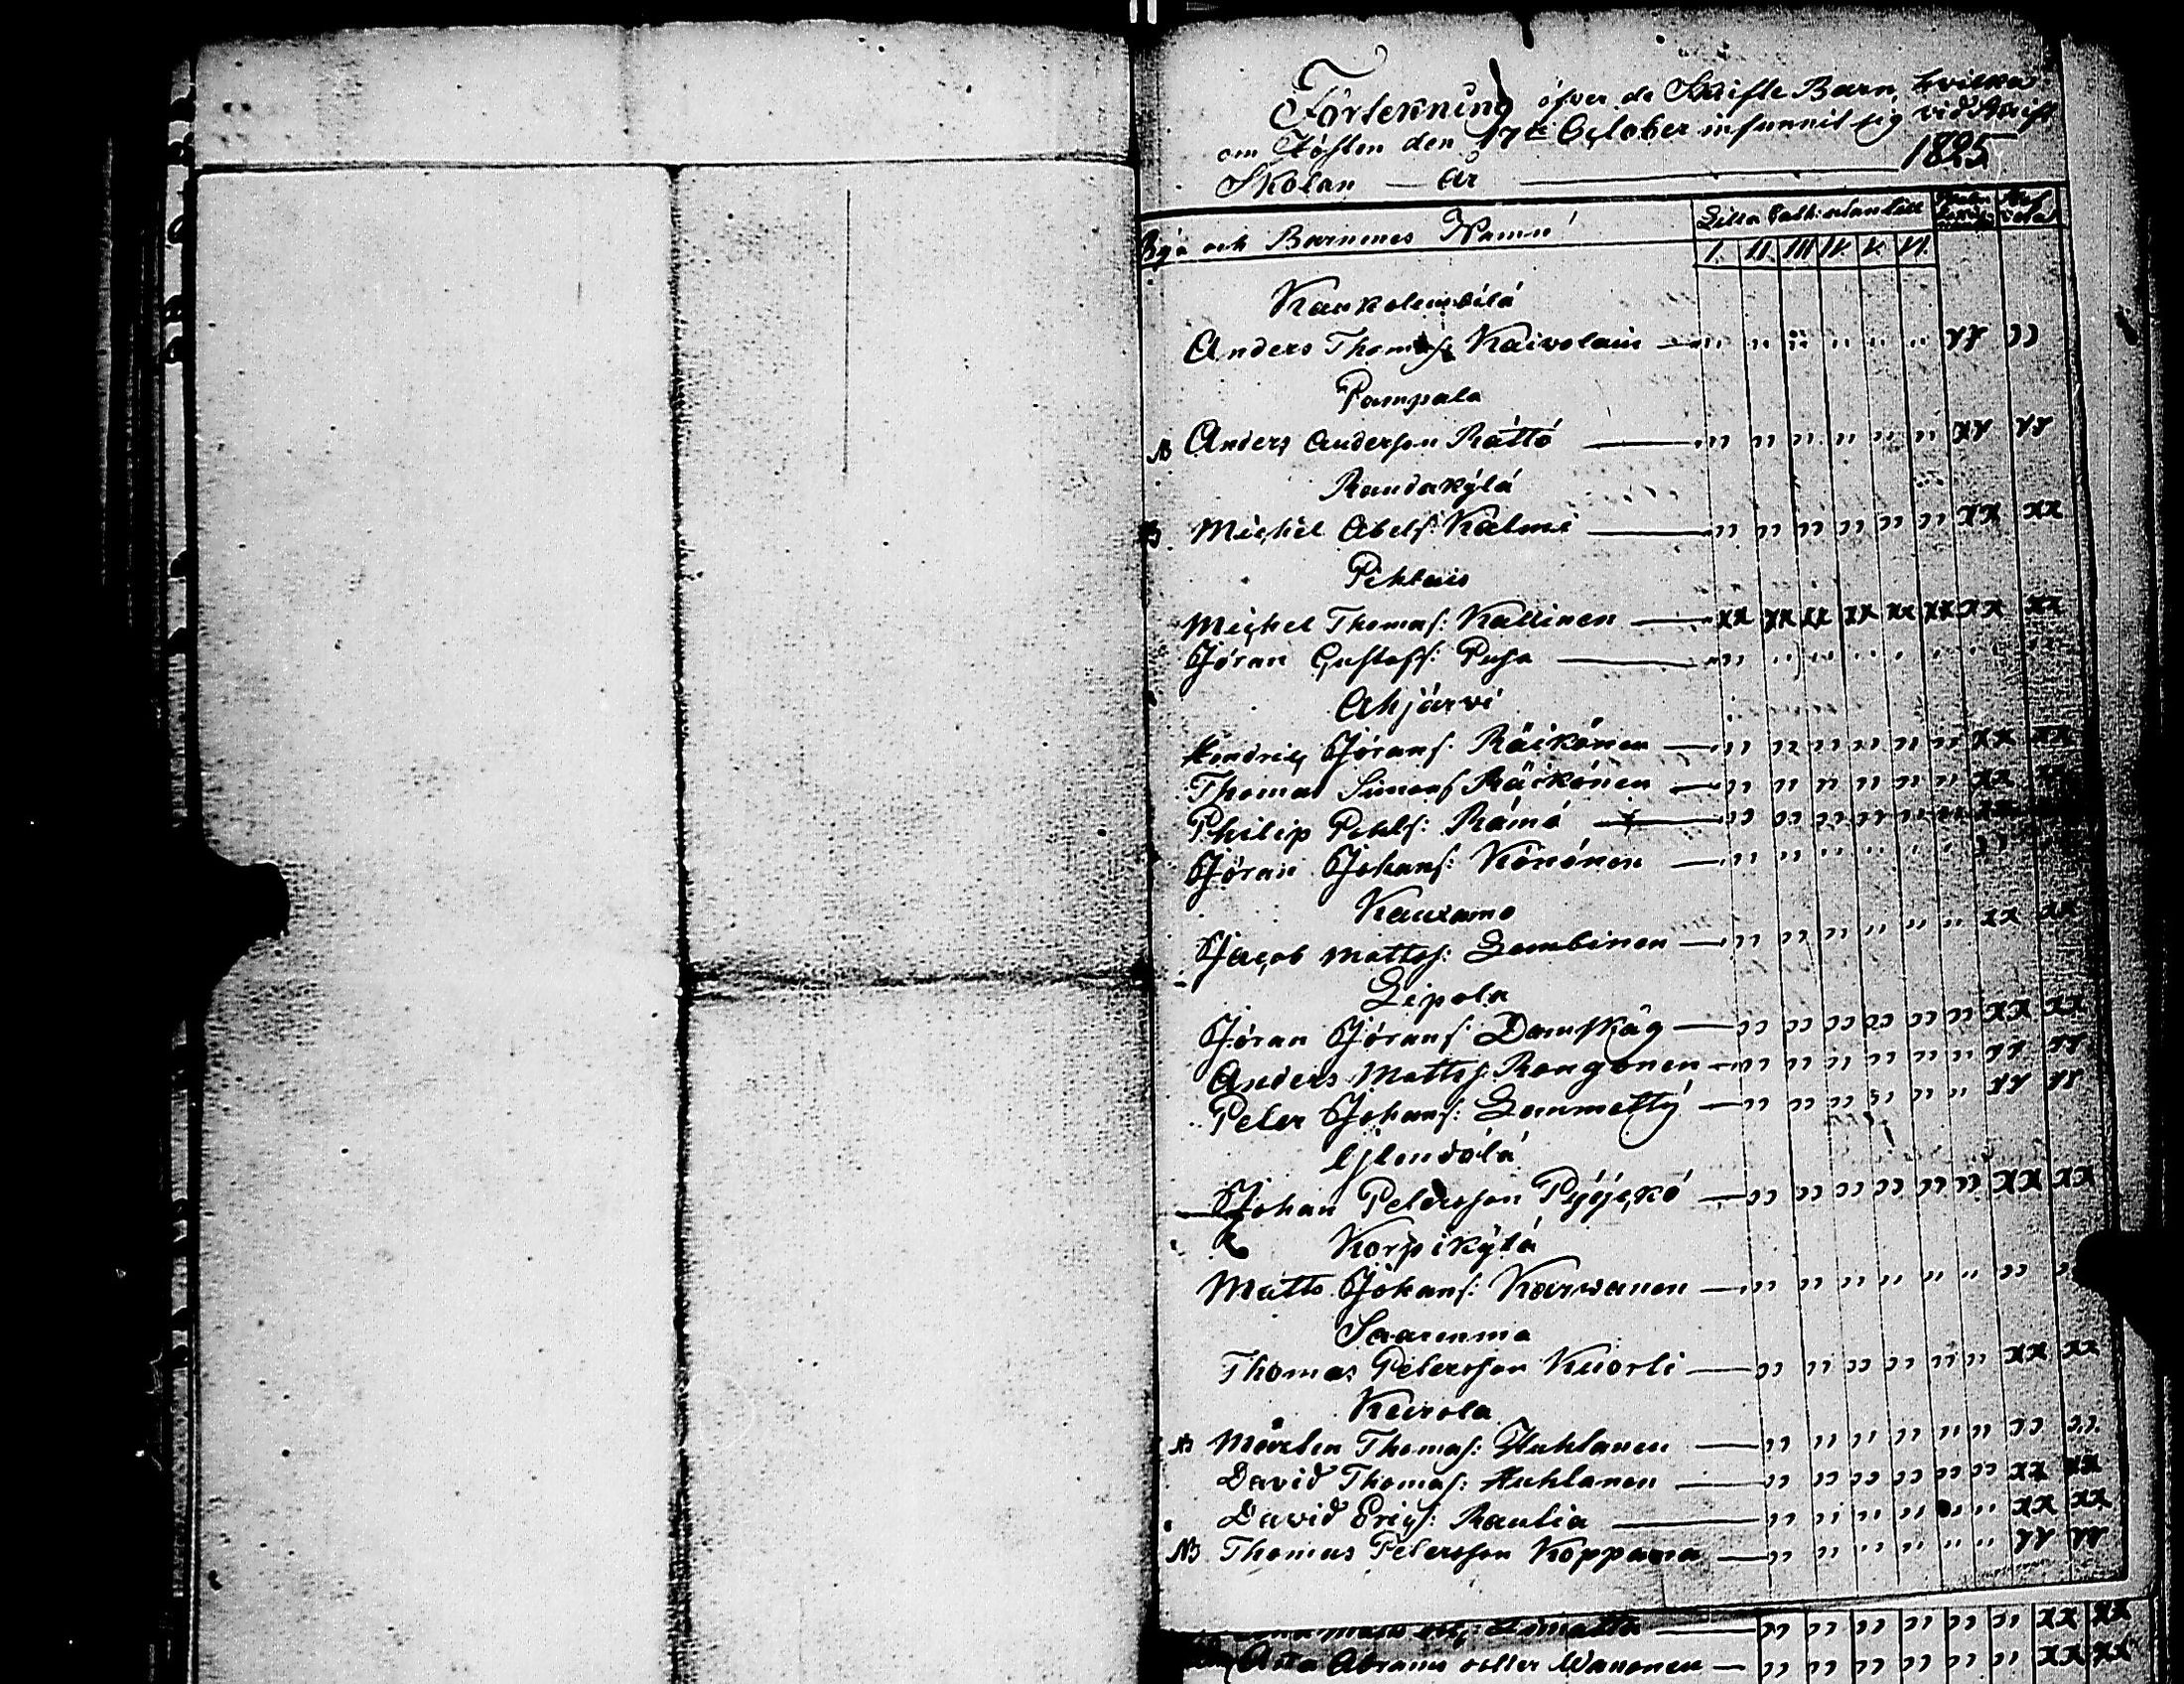 Förteckning öfver de Skrifte Barn, hvilka
om Hösten den 17de October infunnit sig vid Skrift
Skolan — år — 1825
Bya och Barnenes Namn Lilla Cath: utantill
I. II. III IV. V. VI.
Anders Thomas: Kaivolain — " " " " " "
Pampala
NB Anders Andersson Rättö — " " " " " " xx
Randakylä
NB. Michel Abels: Kalmi — " " " " " " xx xx
Pihlais
Michel Thomas: Kallinen — xx xx xx xx xx xx xx xx
Jöran Gustafs: Pusa — " " " " " " " "
Ahjärvi
Hendric Jörans: Räikönen — " " " " " " xx xx
Thomas Simons Räikönen — " " " " " " xx xx
Philip Pohls: Rämä — " " " " " " xx
Jöran Johans: Könönen — " " " " " " "
Kauxamo
Jacob Matts: Lembinen — " " " " " " xx xx
Lipola
Jöran Jörans: Damskäg — " " " " " " xx xx
Anders Matts: Rongonen — " " " " " "
Peter Johans: Lammetty — " " " " " "
Johan Petersson — " " " " " " xx xx
Korpikylä
Matts Johans: Karvanen — " " " " " " " "
Saarenma
Thomas Petersson Kuorti — " " " " " " xx xx
Kurola
NB Mårten Thomas: Huhtanen — " " " " " " " "
David Thomas: Huhtanen — " " " " " " xx xx
David Erics: Rautia — " " " " " " xx xx
NB Thomas Petersson Koppana — " " " " " "
" " " " " " xx xx
Abrams dotter Wanonen — " " " " " " xx xx